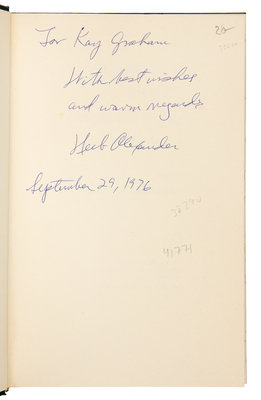 For Kay Graham
With best wishes
and warm regards
Herb Alexander
September 29, 1976
41771